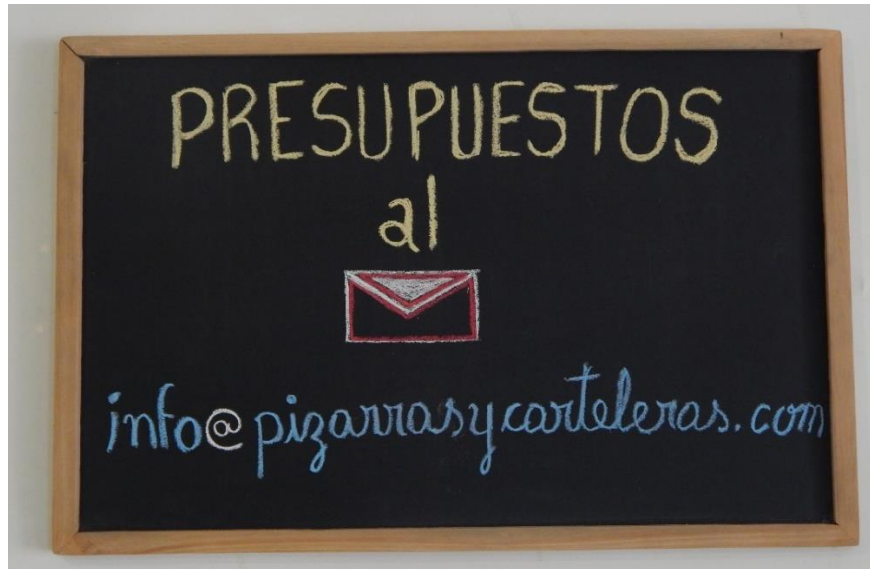 PRESUPUESTOS
al
info@pizarrasycarteleras.com